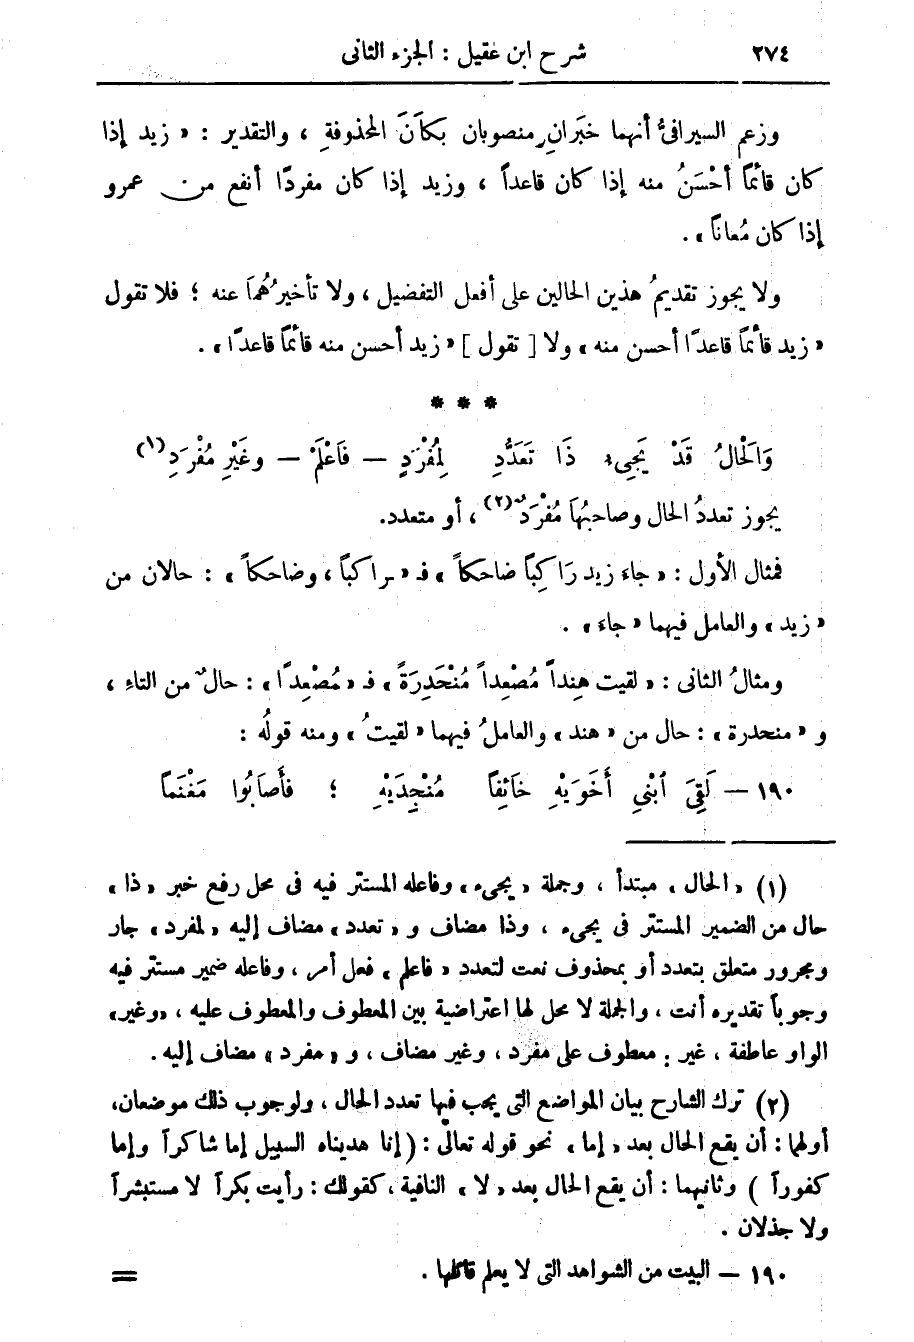 ٢٧٤ شرح ابن عقيل : الجزء الثانى
وزعم السيرافىُّ أنهما خبَرانِ منصوبان بكاَنَ المحذوفةِ ، والتقدير : « زيد إذا
كان قائماً أحْسَنُ منه إذا كان قاعداً ، وزيد إذا كان مفردًا أنفع من عمرو
إذا كان مُعاناً » .
ولا يجوز تقديمُ هذين الحالين على أفعل التفضيل ، ولا تأخيرُهُمَا عنه ؛ فلا تقول
« زيد قائماً قاعدًا أحسن منه » ولا [ تقول ] « زيد أحسن منه قائماً قاعدًا » .
* * *
وَالْحَالُ قَدْ يَجِىءُ ذَا تَعَدُّدِ لِمُفْرَدٍ – فَاعْلَمْ – وغَيْرِ مُفْرَدِ (١)
يجوز تعددُ الحال وصاحبُهَا مُفْرَدٌ (٢) ، أو متعدد.
فمثال الأول : « جاءَ زيد رَاكِبًا ضاحكاً » فـ « ـراكباً ، وضاحكاً » : حالان من
« زيد » والعامل فيهما « جاءَ » .
ومثالُ الثانى : « لقيت هِنداً مُصْعِداً مُنْحَدِرَةً » فـ « مُصْعِدًا » : حالٌ من التاءِ ،
و « منحدرة » : حال من « هند » والعاملُ فيهما « لقيتُ » ومنه قولُه :
١٩٠ – لَقِىَ ابْنِى أَخَوَيْهِ خَائِفاً مُنْجِدَيْهِ ؛ فأَصَابُوا مَغْنَمَاً
(١) « الحال » مبتدأ ، وجملة « يجىء » وفاعله المستتر فيه فى محل رفع خبر « ذا »
حال من الضمير المستتر فى يجىء ، وذا مضاف و « تعدد » مضاف إليه « لمفرد » جار
ومجرور متعلق بتعدد أو بمحذوف نعت لتعدد « فاعلم » فعل أمر ، وفاعله ضمير مستتر فيه
وجوباً تقديره أنت ، والجملة لا محل لها اعتراضية بين المعطوف والمعطوف عليه ، « وغير »
الواو عاطفة ، غير : معطوف على مفرد ، وغير مضاف ، و « مفرد » مضاف إليه .
(٢) ترك الشارح بيان المواضع التى يجب فيها تعدد الحال ، ولوجوب ذلك موضعان،
أولهما : أن يقع الحال بعد « إما » نحو قوله تعالى : ( إنا هديناه السبيل إما شاكراً وإما
كفوراً ) وثانيهما : أن يقع الحال بعد « لا » النافية ، كقولك : رأيت بكراً لا مستبشراً
ولا جذلان .
١٩٠ – البيت من الشواهد التى لا يعلم قائلها . =